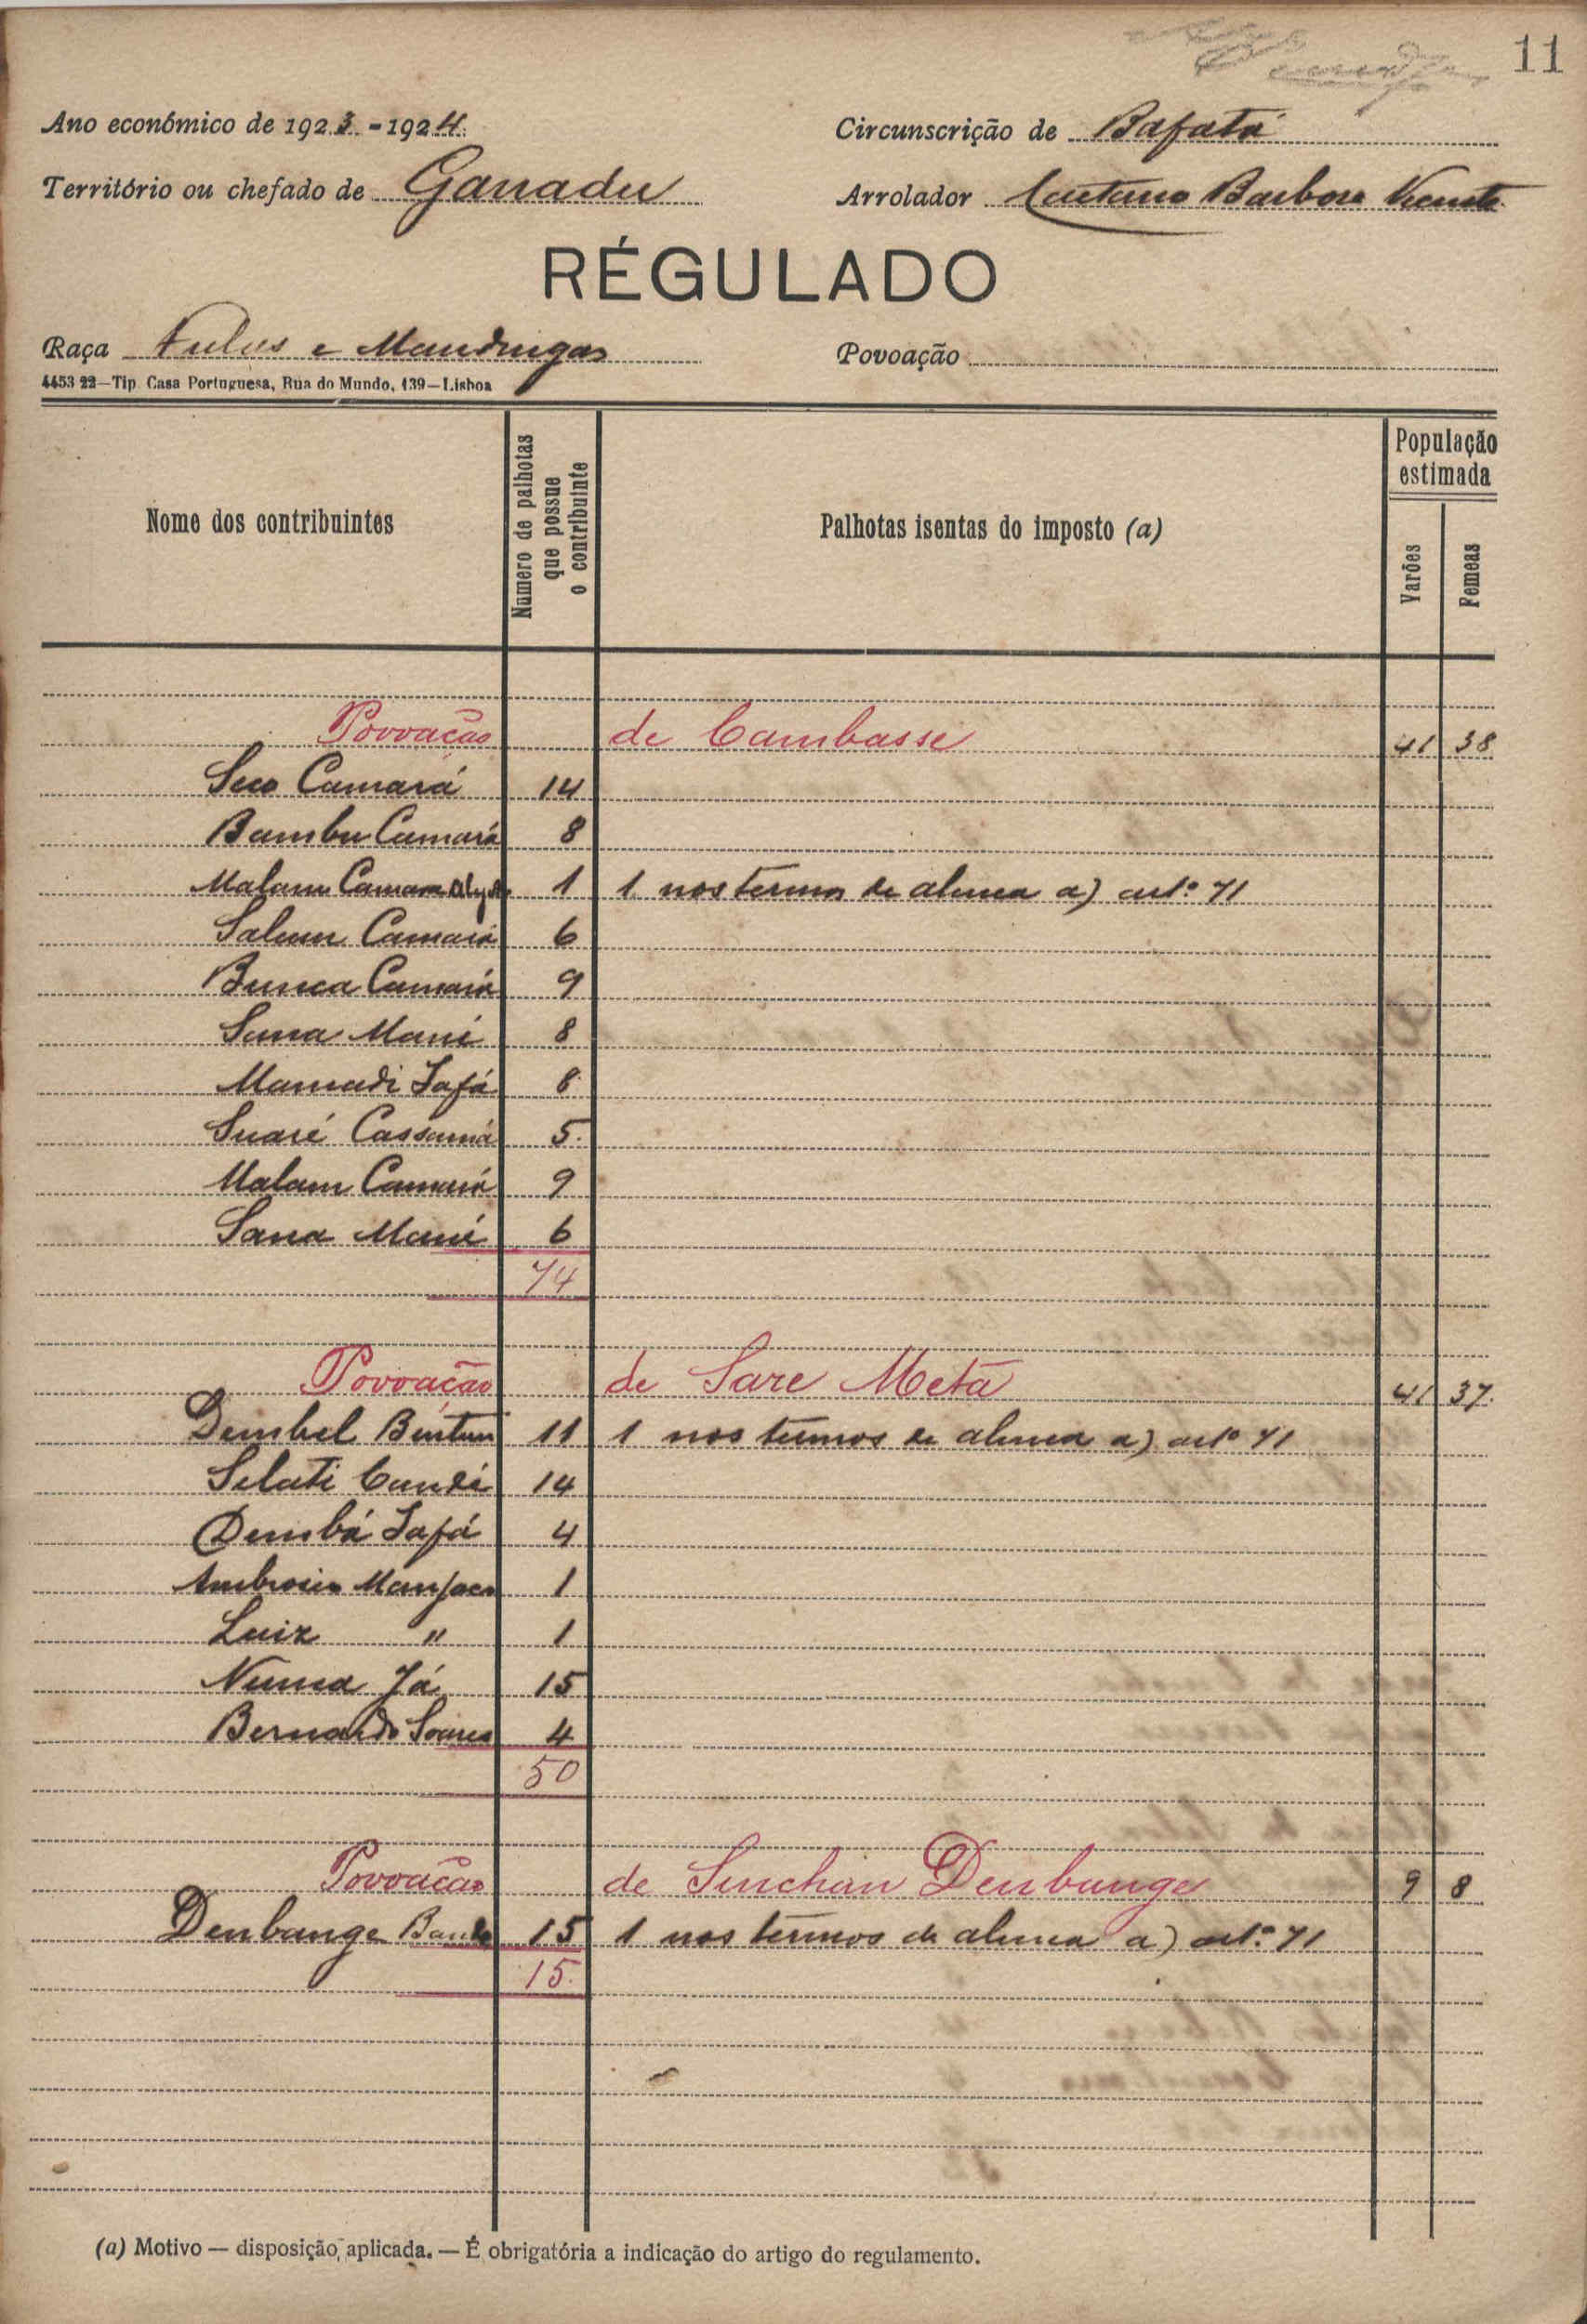 11
Ano económico de 1923-1924. Circunscrição de Bafatá
Território ou chefado de Ganadu Arrolador Caetano Barbosa Vicente
RÉGULADO
Raça Fulas e Mandingas Povoação
4453 22—Tip. Casa Portuguesa, Rua do Mundo, 139—Lisboa
Nome dos contribuintes
Número de palhotas que possue o contribuinte
Palhotas isentas do imposto (a)
População estimada
Varões
Femeas
Povoação de Cambasse 41 38
Seco Camará 14
Bambu Camará 8
Malam Camara 1 1 nos termos de alinea a) art.º 71
Camará 6
Bunca Camará 9
Sana Mané 8
Mamadi Safá 8
Suaré Cassamá 5.
Malam Camará 9
Sana Mané 6
74
Povoação de Sare Metá 41 37.
Dembel Bintun 11 1 nos termos de alinea a) artº 71
Selati Candé 14
Dembá Safá 4
Ambrosio Manjaco 1
Luiz " 1
Numa Já 15
Bernardo Soares 4
50
Povoação de Sinchan Denbange 9 8
Denbange Bande 15 1 nos termos de alinea a) art.º 71
15.
(a) Motivo — disposição, aplicada. — É obrigatória a indicação do artigo do regulamento.